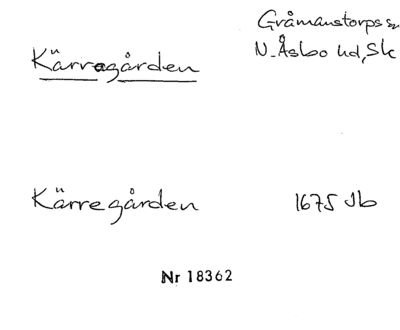 Gråmanstorps sn
Kärragården
N. Åsbo hd, Sk
Kärregården 1675 Jb
Nr 18362